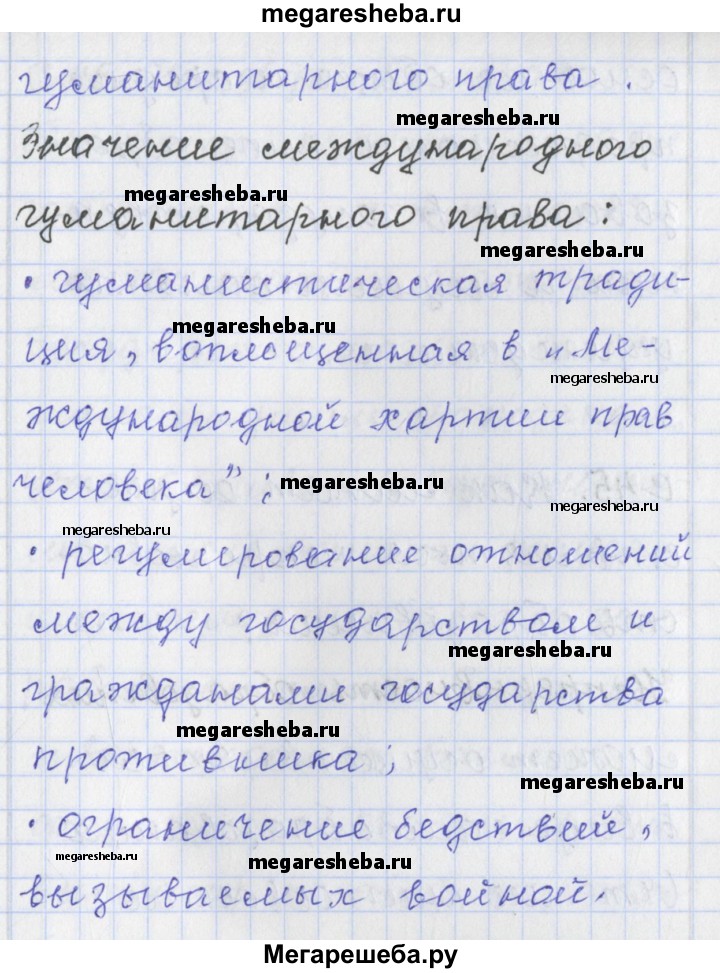 megaresheba.ru
гуманитарного права.
megaresheba.ru
Значение международного
megaresheba.ru
гуманитарного права:
megaresheba.ru
• гуманистическая тради-
megaresheba.ru
ция, воплощенная в „Ме-
megaresheba.ru
ждународной хартии прав
человека”;
megaresheba.ru
megaresheba.ru
megaresheba.ru
• регулирование отношений
между государством и
megaresheba.ru
гражданами государства
megaresheba.ru
противника;
megaresheba.ru
• ограничение бедствий,
megaresheba.ru
megaresheba.ru
вызываемых войной.
Мегарешеба.ру